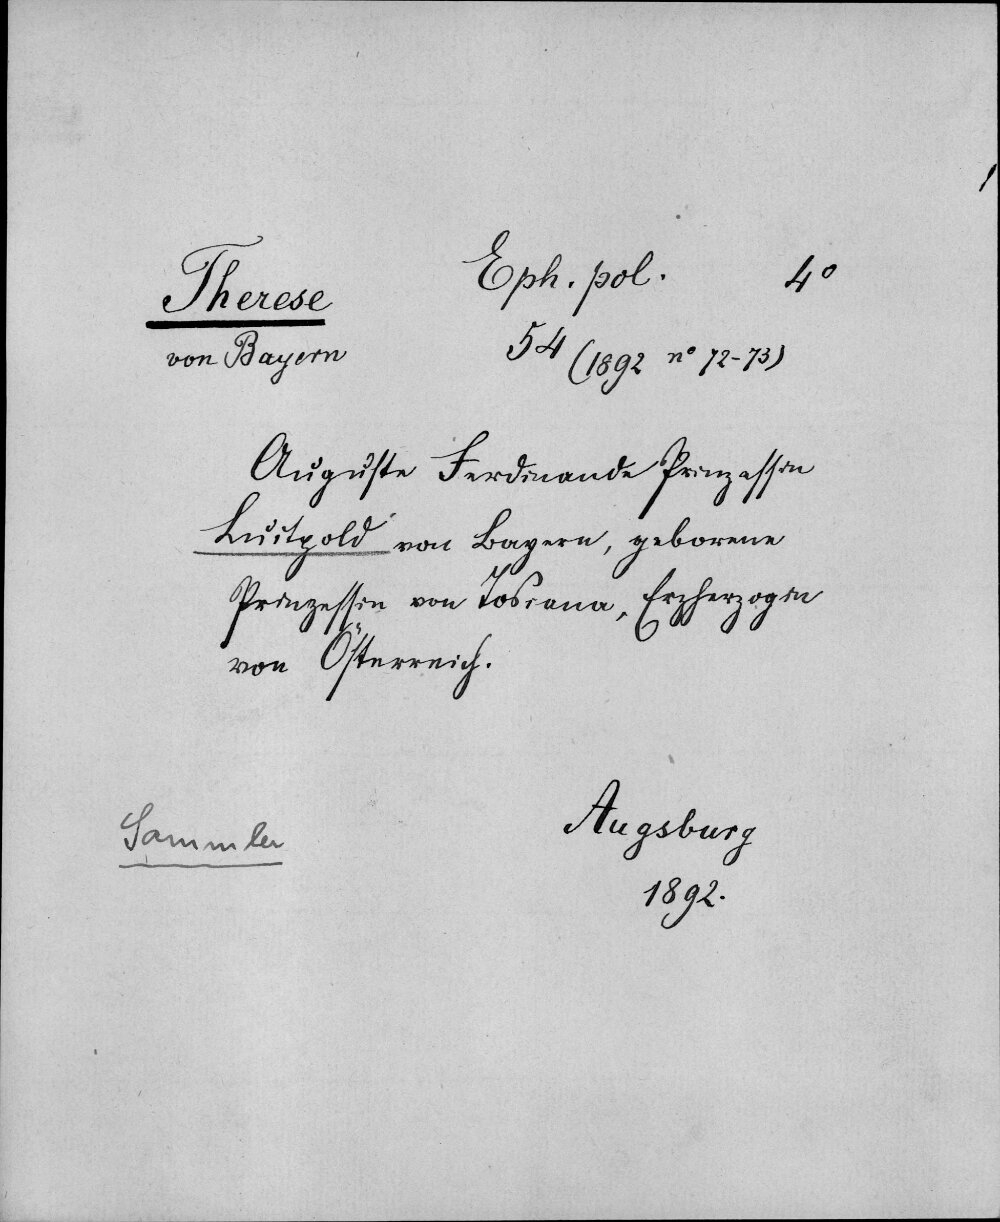 Therese
von Bayern
Eph. pol. 4°
54 (1892 n° 72-73)
Auguste Ferdinande Prinzessin
Luitpold von Bayern, geborene
Prinzessin von Toscana, Erzherzogin
von Österreich.
Sammler
Augsburg
1892.